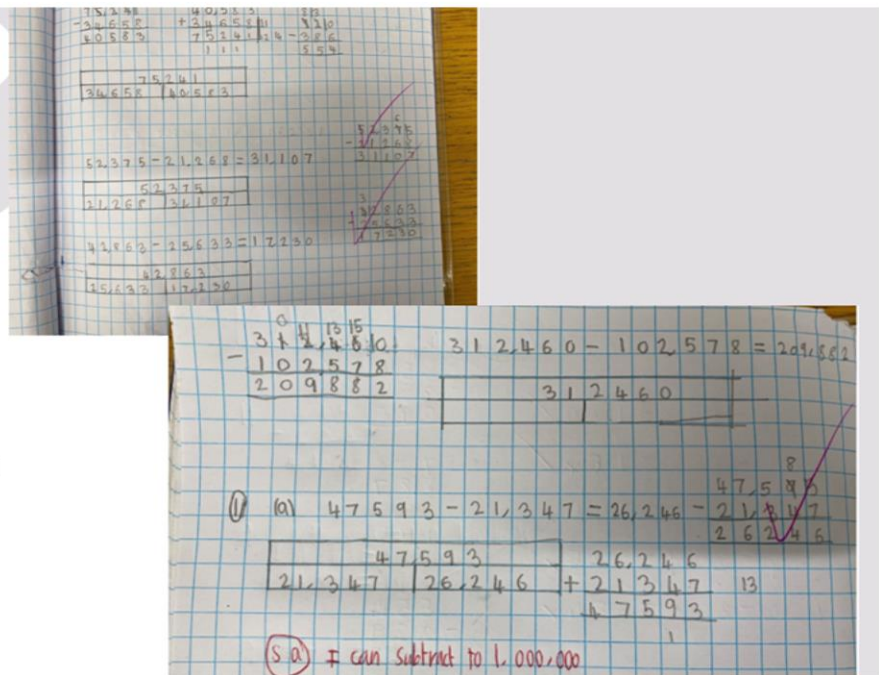 40,583
75241
386
554
75241
34658 40,583
52,375-21,268=31,107
52375
21,268 31,107
52375
21268
31107
42863-25,633=17230
42863
25,633 17,230
17230
102578
209882
312,460-102578=209,882
312460
① (a) 47593-21,347=26,246
47,593
21,347
26246
47,593
21,347 26,246
26,246
+21347
47593
1
13
(S a) I can subtract to 1,000,000